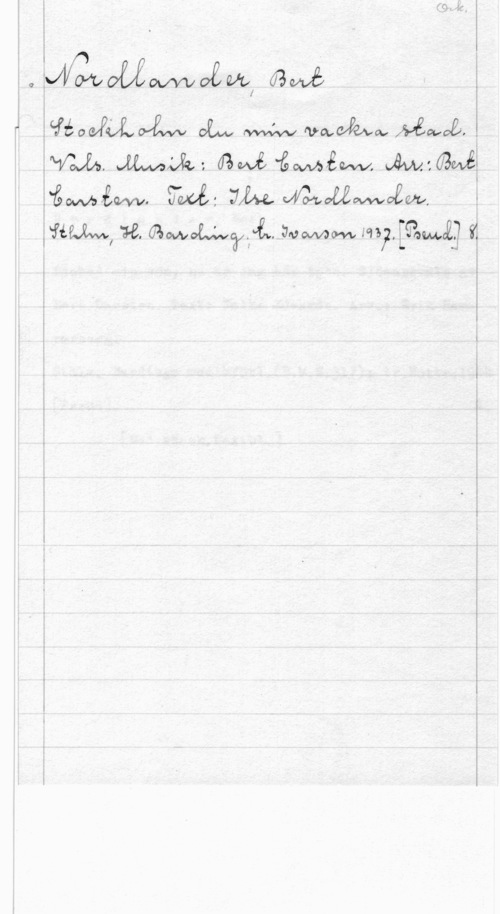 Ork.
Nordlander, Bert
Stockholm du min vackra stad.
Vals. Musik: Bert Carsten. Arr.: Bert
Carsten. Text: Ilse Nordlander.
Sthlm, H. Barding, tr. Ivarson 1937. [Pseud.] 8.